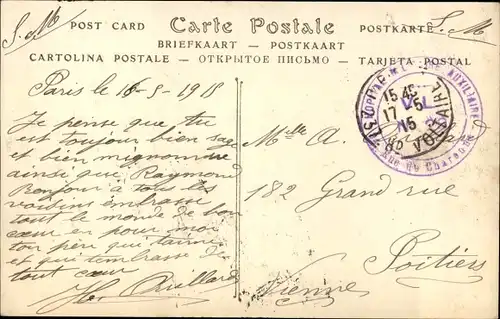 S. M.
POST CARD Carte Postale POSTKARTE
S. M
BRIEFKAART — POSTKAART
CARTOLINA POSTALE — ОТКРЫТОЕ ПИСЬМО — TARJETA POSTAL
Paris le 16-5-1915
Je pense que tu
est toujours bien sage
et bien mignonne
ainsi que Raymond
Bonjour à tous les
voisins embrasse
tout le monde de bon
cœur en pour moi
ton père que t'aime
et qui t'embrasse de
tout cœur
AUXILIAIRE
15 45
17 - 5
15
Bd VOLTAIRE
Rue de Charonne
Melle A.
182 Grand rue
Poitiers
Vienne